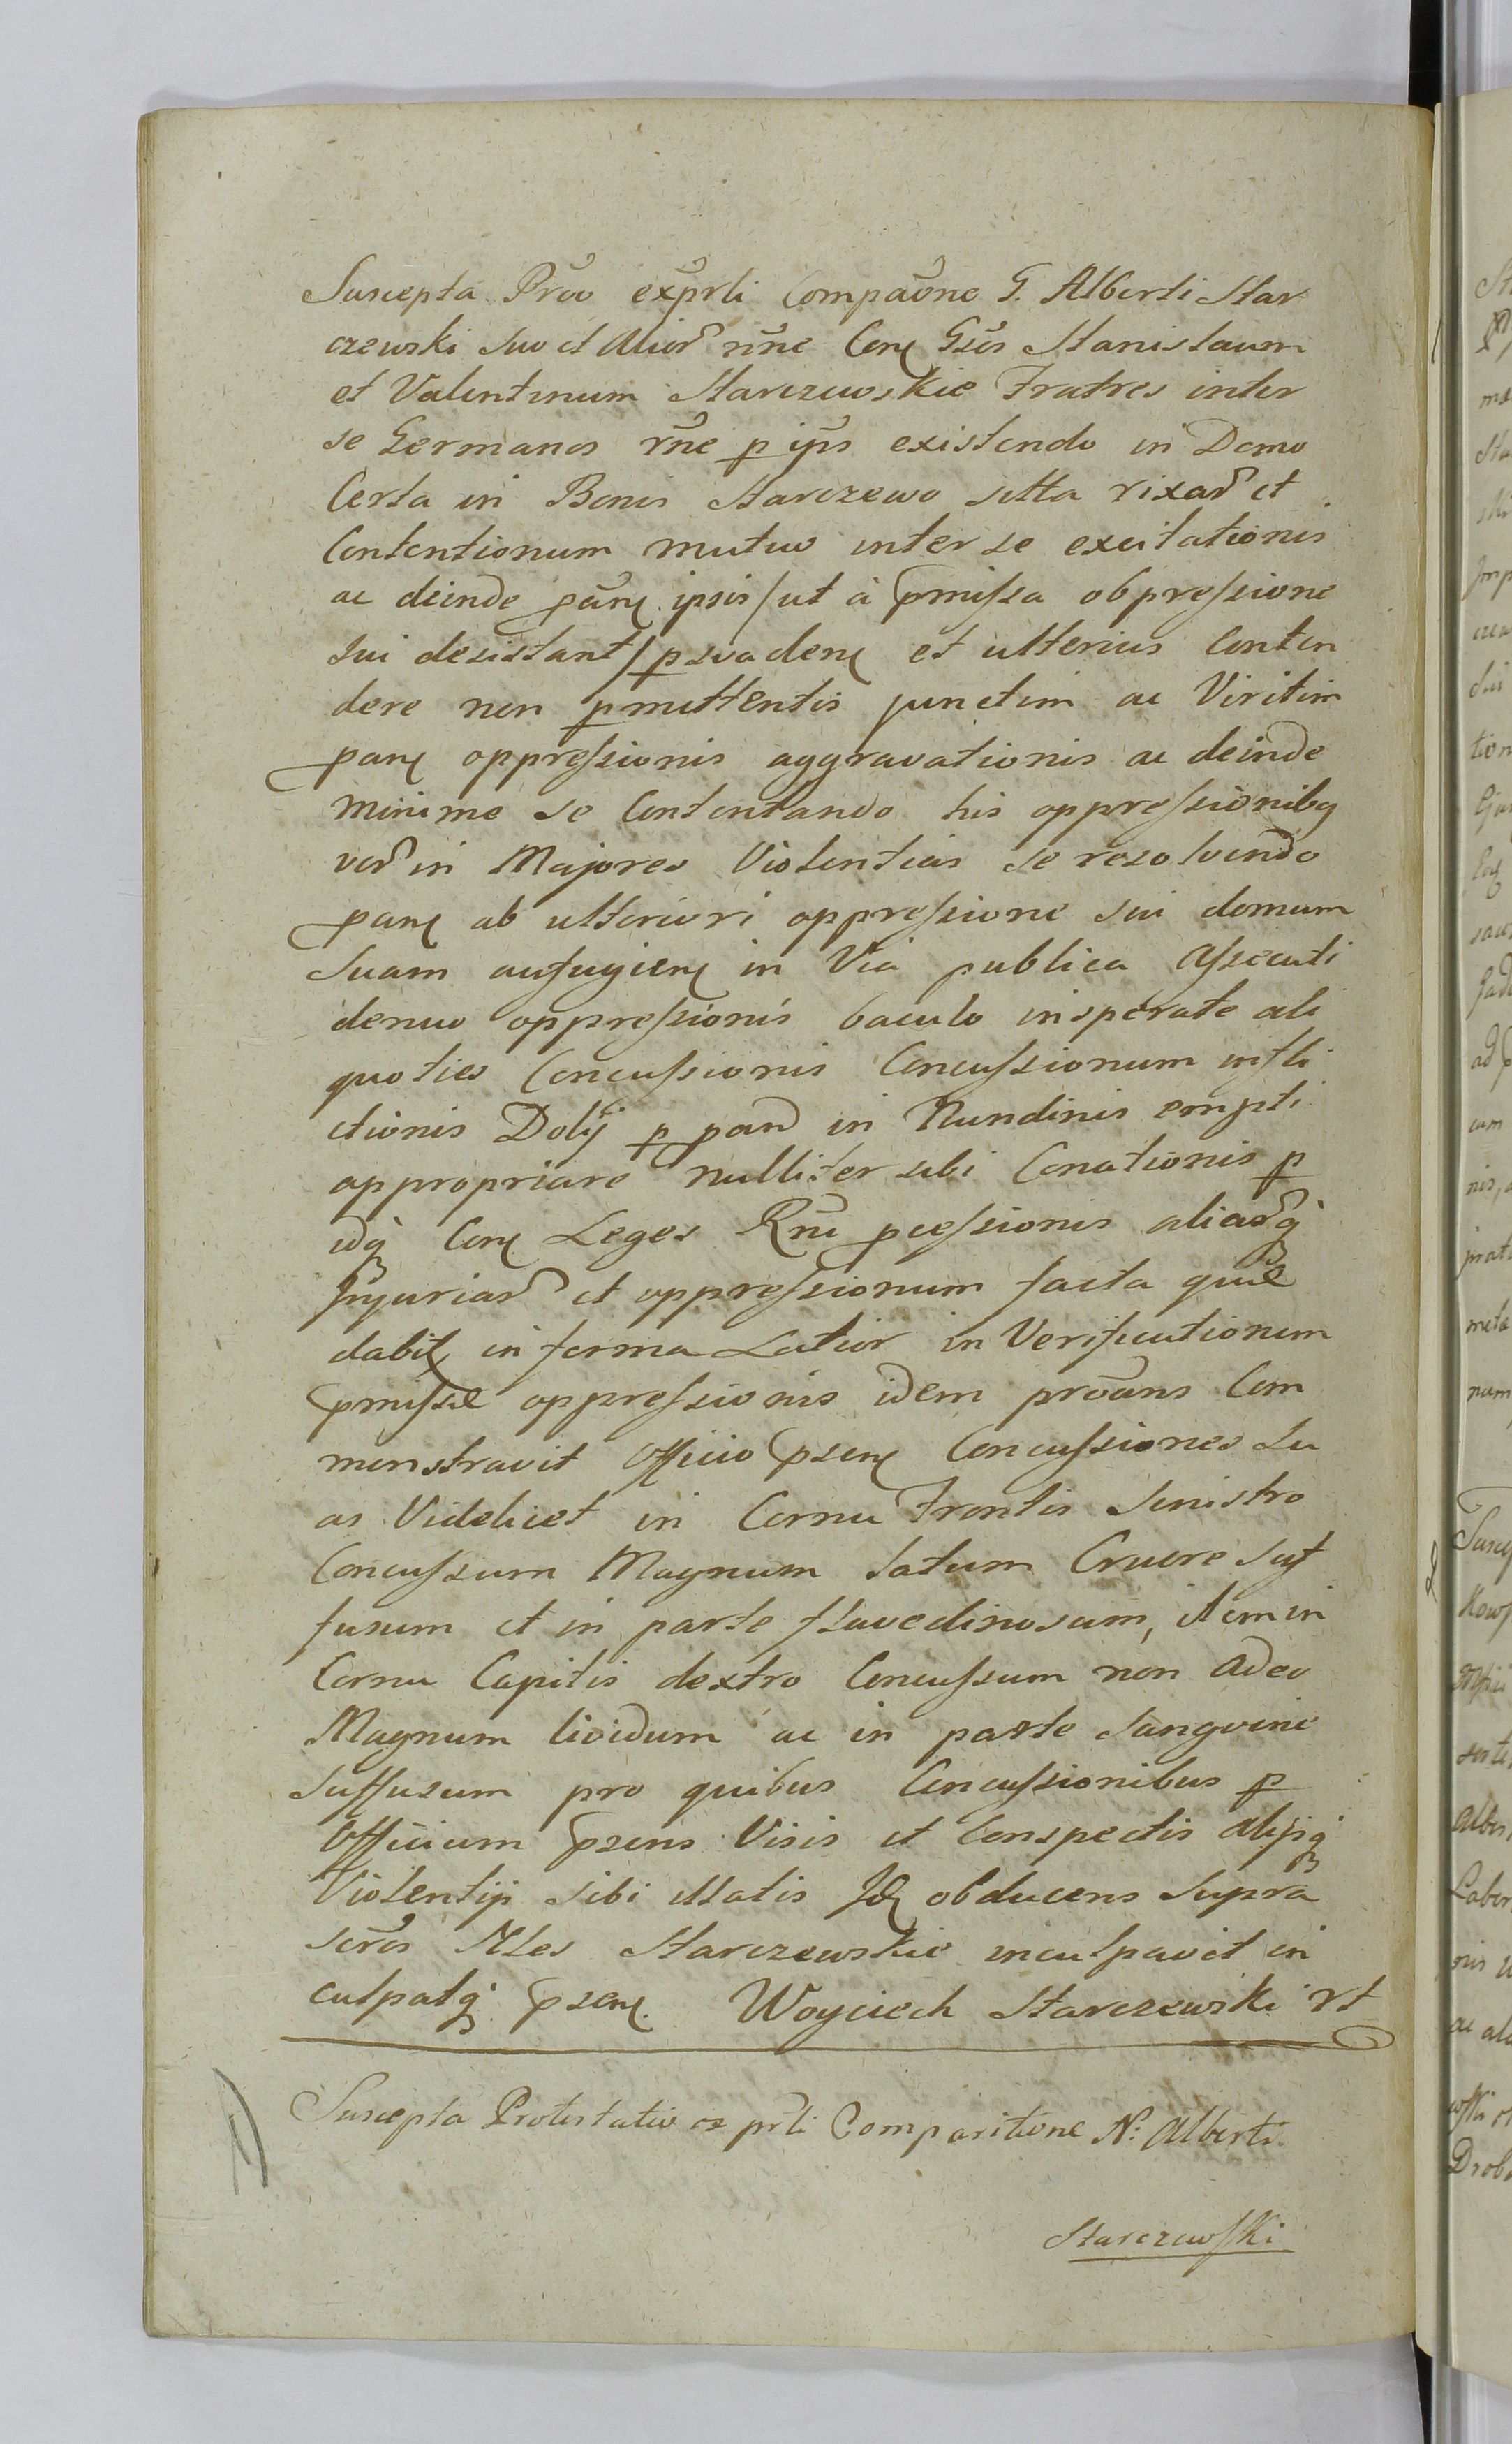 Suscepta Prõo exp̃rli Compaõne G. Alberti Star
czewski suo et alior nñe Con Gsõs Stanislaum
et Valentinum Starczewskie Fratres inter
se Germanos rñe p ip̃s existendo in Domo
Certa in Bonis Starczewo sitta rixar et
Contentionum mutuo inter se excitationis
ac deinde pãn ipsis/ut à pmissa obpressione
sui desistant/psvaden et ulterius Conten
dere non pmittentis junctim ac Viritim
pan oppressionis aggravationis ac deinde
minime se Contentando his oppressionibq
ver in Majores Violentias se resolvendo
pan ab ulteriori oppressione sui domum
Suam aufugien in Via publica assecuti
denuo oppressionis baculo insperate ali
quoties Concussionis Concussionum infli
ctionis Dolij p pan in Nundinis empti
appropriare nulliter sibi Conationis p
idq Con Leges Rñi pcessionis aliarq
Injuriar et oppressionum facta quæ
dabit in forma Latior in Verificationem
pmissæ oppressionis idem prõans Com
monstravit Officio psen Concussiones Su
as Videlicet in Cornu Frontis Sinistro
Concussum Magnum Satum Cruore suf
fusum et in parte flavedinosam, itemin
Cornu Capitis dextro Concussum non adeo
Magnum lividum ac in parte Sangvine
Suffusum pro quibus Concussionibus p
Officium psens Visis et Conspectis alijsq
Violentijs sibi illatis Id obducens Supra
scr̃os Nles Starczewskie inculpavit in
culpatq psen. Woyciech Starczewski
Suscepta Protestatio ex prli Comparitione N: Alberti
Starczewski